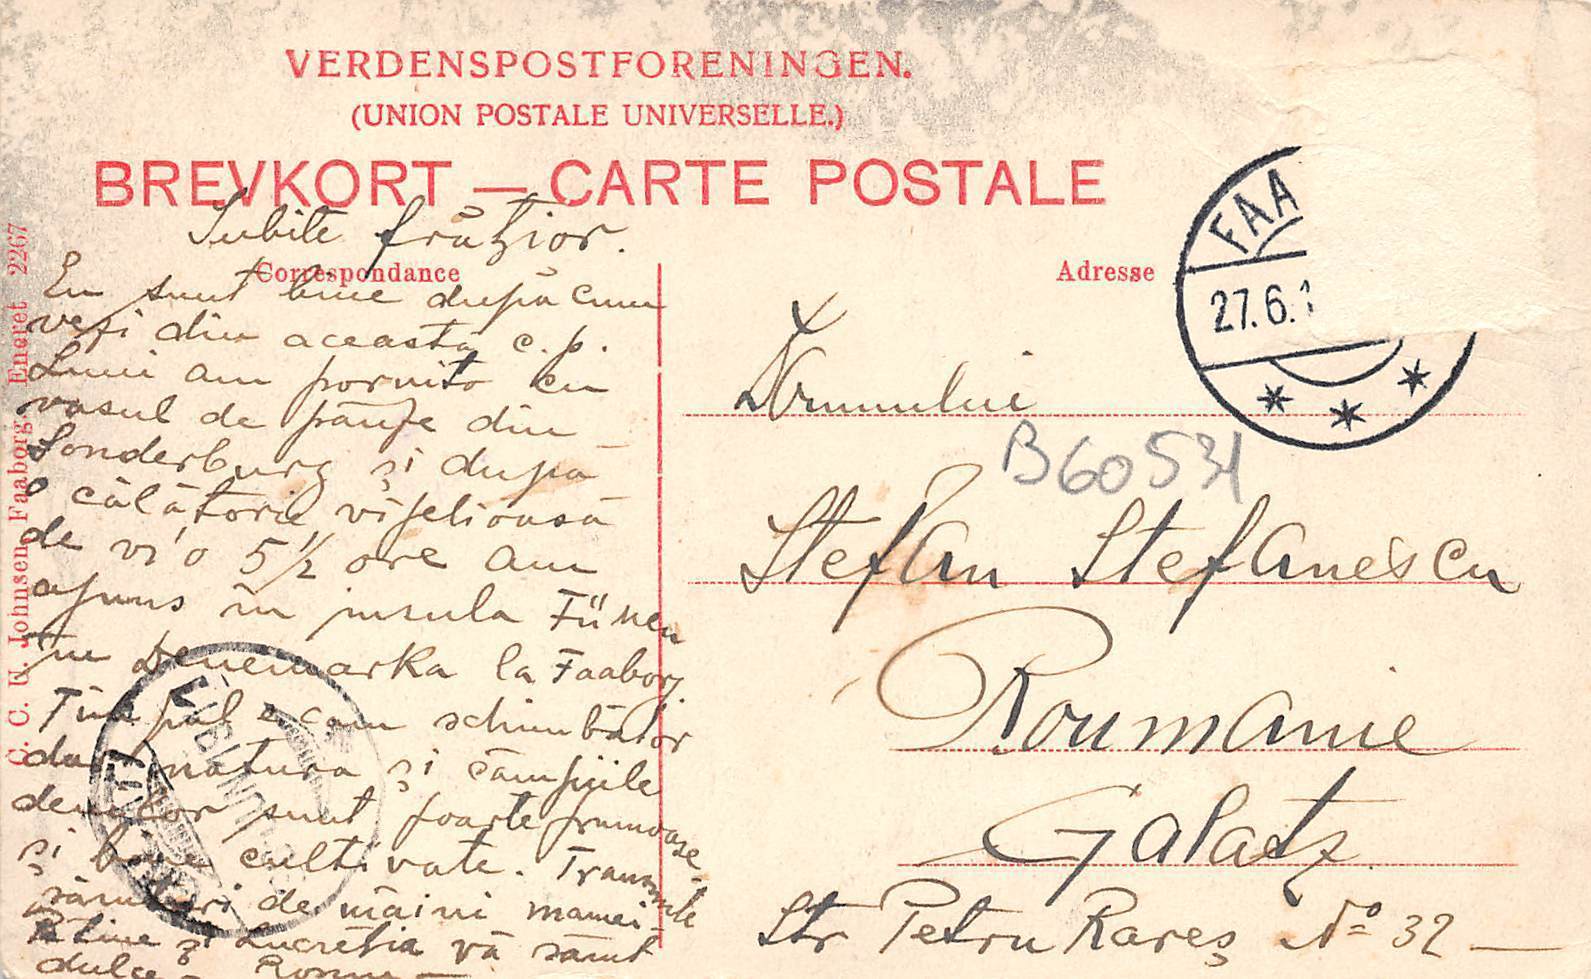 VERDENSPOSTFORENINGEN.
(UNION POSTALE UNIVERSELLE.)
BREVKORT — CARTE POSTALE
Correspondance
Adresse
C. C. U. Johnsen, Faaborg. Eneret 2267
Iubite frățior.
Eu sunt bine după cum
vezi din aceasta c. p.
Luni am pornito cu
vasul de pânze din
Sonderburg și după
o călătorie vijelioasă
de vr'o 5 1/2 ore am
ajuns în insula Fünen
în Denemarka la Faaborg.
Timpul e cam schimbător
dar natura și câmpiile
denilor sunt foarte frumoase
și bine cultivate. Transmite
sărutări de mâini mamei
și Lucreția vă sărut
dulce
Domnului
Stefan Stefanescu
Roumanie
Galatz
Str Petru Rareș No 32
B60531
FAA
27.6.1